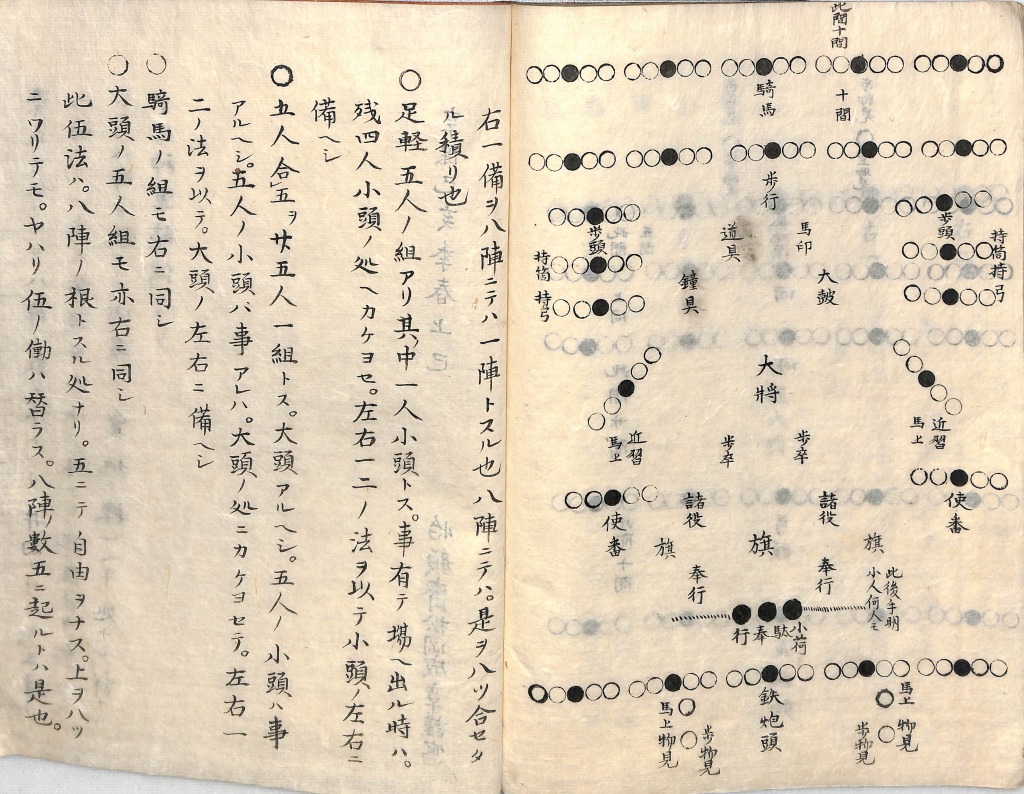 此間十間
騎馬
十間
歩行
歩頭
持筒
持弓
馬印
道具
大鼓
鐘具
歩頭
持筒
持弓
大将
近習
馬上
歩卒
歩卒
近習
馬上
使番
諸役
諸役
使番
旗
旗
旗
奉行
奉行
此後手明
小人何人モ
小荷
駄
奉
行
鉄炮頭
馬上物見
歩物見
馬上物見
歩物見
右一備ヲ八陣ニテハ一陣トスル也八陣ニテハ。是ヲ八ツ合セタ
ル積リ也
○足軽五人ノ組アリ其中一人小頭トス。事有テ場ヘ出ル時ハ。
残四人小頭ノ処ヘカケヨセ。左右一二ノ法ヲ以テ小頭ノ左右ニ
備ヘシ
○五人合五ヲ廿五人一組トス。大頭アルヘシ。五人ノ小頭ハ事
アルヘシ。五人ノ小頭バ事アレハ。大頭ノ処ニカケヨセテ。左右一
二ノ法ヲ以テ。大頭ノ左右ニ備ヘシ
○騎馬ノ組モ右ニ同シ
○大頭ノ五人組モ亦右ニ同シ
此伍法ハ。八陣ノ根トスル処ナリ。五ニテ自由ヲナス。上ヲハツ
ニワリテモ。ヤハリ伍ノ働ハ替ラス。八陣ノ數五ニ起ルトハ是也。